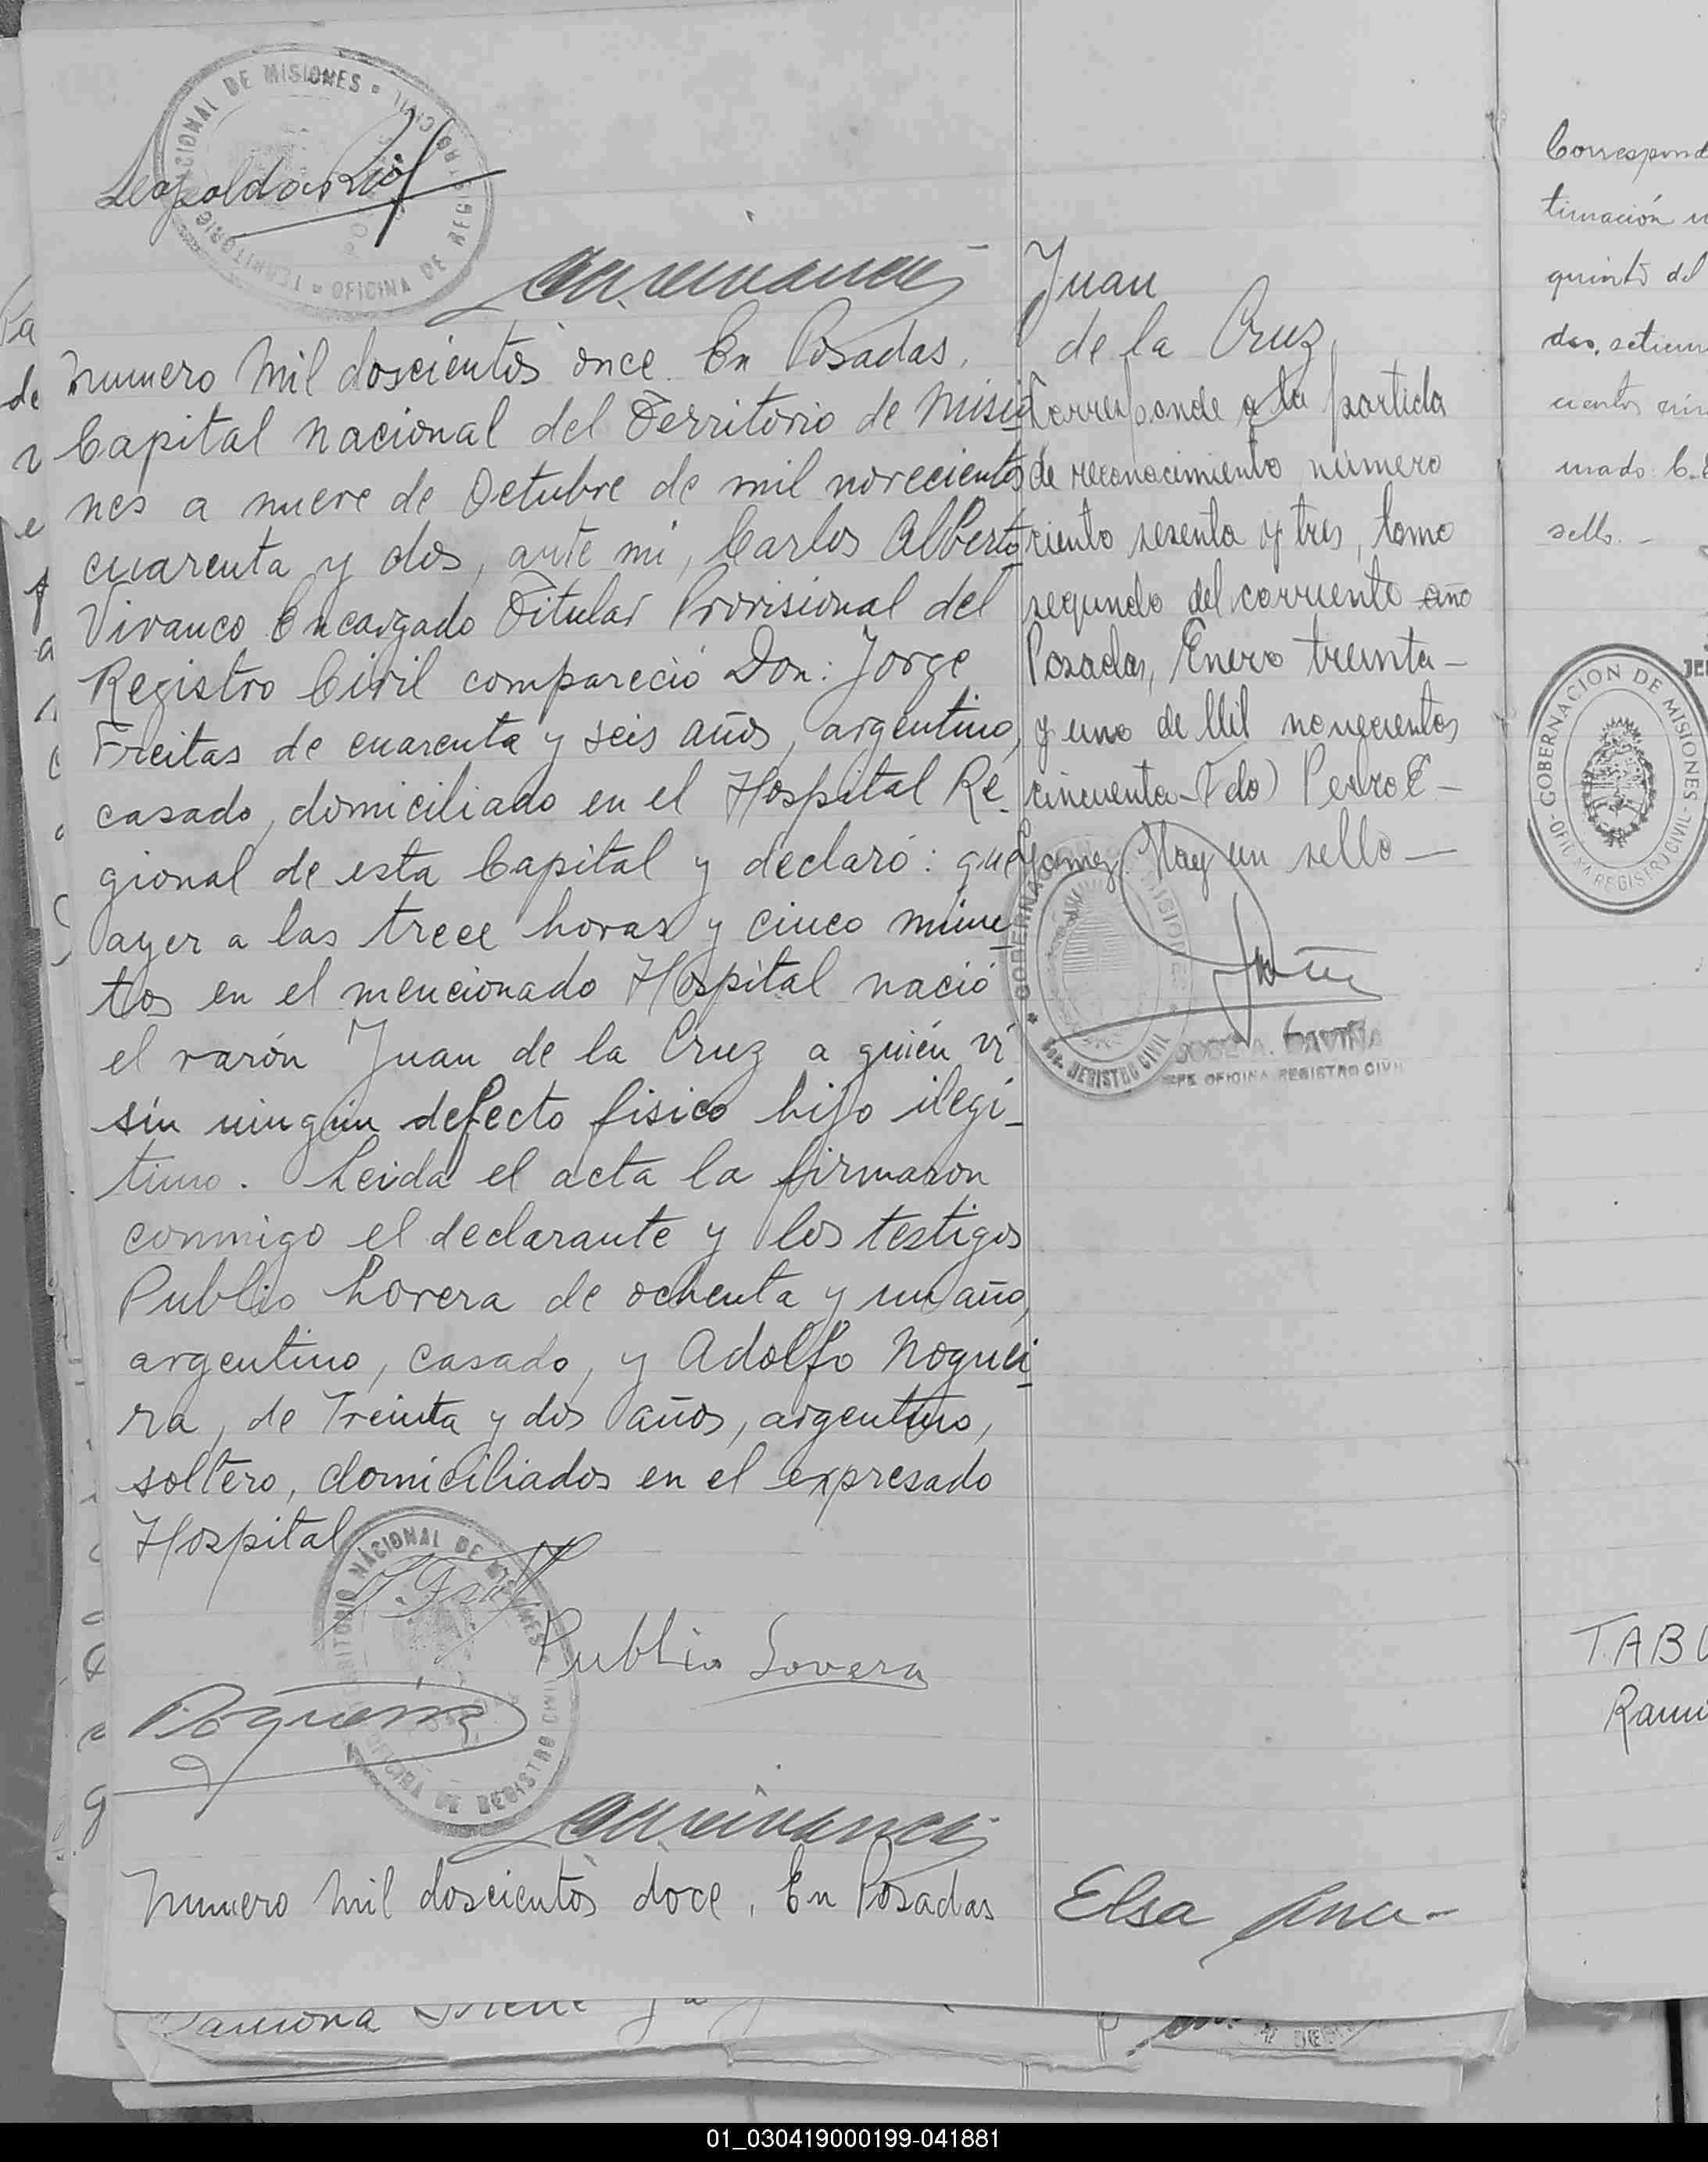 TERRITORIO NACIONAL DE MISIONES
OFICINA DE REGISTRO CIVIL
Leopoldo
Numero Mil doscientos once. En Posadas,
Capital Nacional del Territorio de Misio
nes a nueve de Octubre de mil novecientos
cuarenta y dos, ante mi, Carlos Alberto
Vivanco Encargado Titular Provisional del
Registro Civil compareció Don: Jorge
Freitas de cuarenta y seis años, argentino,
casado, domiciliado en el Hospital Re-
gional de esta Capital y declaró: que
ayer a las trece horas y cinco minu
tos en el mencionado Hospital nació
el varón Juan de la Cruz a quién vi
sin ningún defecto fisico hijo ilegi-
timo. Leida el acta la firmaron
conmigo el declarante y los testigos
Publio Lovera de ochenta y un año,
argentino, casado, y Adolfo Noguei
ra, de Treinta y dos años, argentino,
soltero, domiciliados en el expresado
Hospital
TERRITORIO NACIONAL DE MISIONES
OFICINA DE REGISTRO CIVIL
Publio Lovera
Nogueira
Numero Mil doscientos doce, En Posadas
Juan
de la Cruz
Corresponde a la partida
de reconocimiento número
ciento sesenta y tres, tomo
segundo del corriente año
Posadas, Enero treinta-
y uno de Mil novecientos
cincuenta-Fdo) Pedro E-
Gamez. Hay un sello—
GOBERNACION MISIONES
REGISTRO CIVIL
JOSE A. DAVIÑA
JEFE OFICINA REGISTRO CIVIL
Elsa Ana-
Correspond
timación
quinto del
dos, setiem
sello.-
GOBERNACION DE MISIONES
REGISTRO CIVIL
TAB
Rami
Ramona Irene
01_030419000199-041881